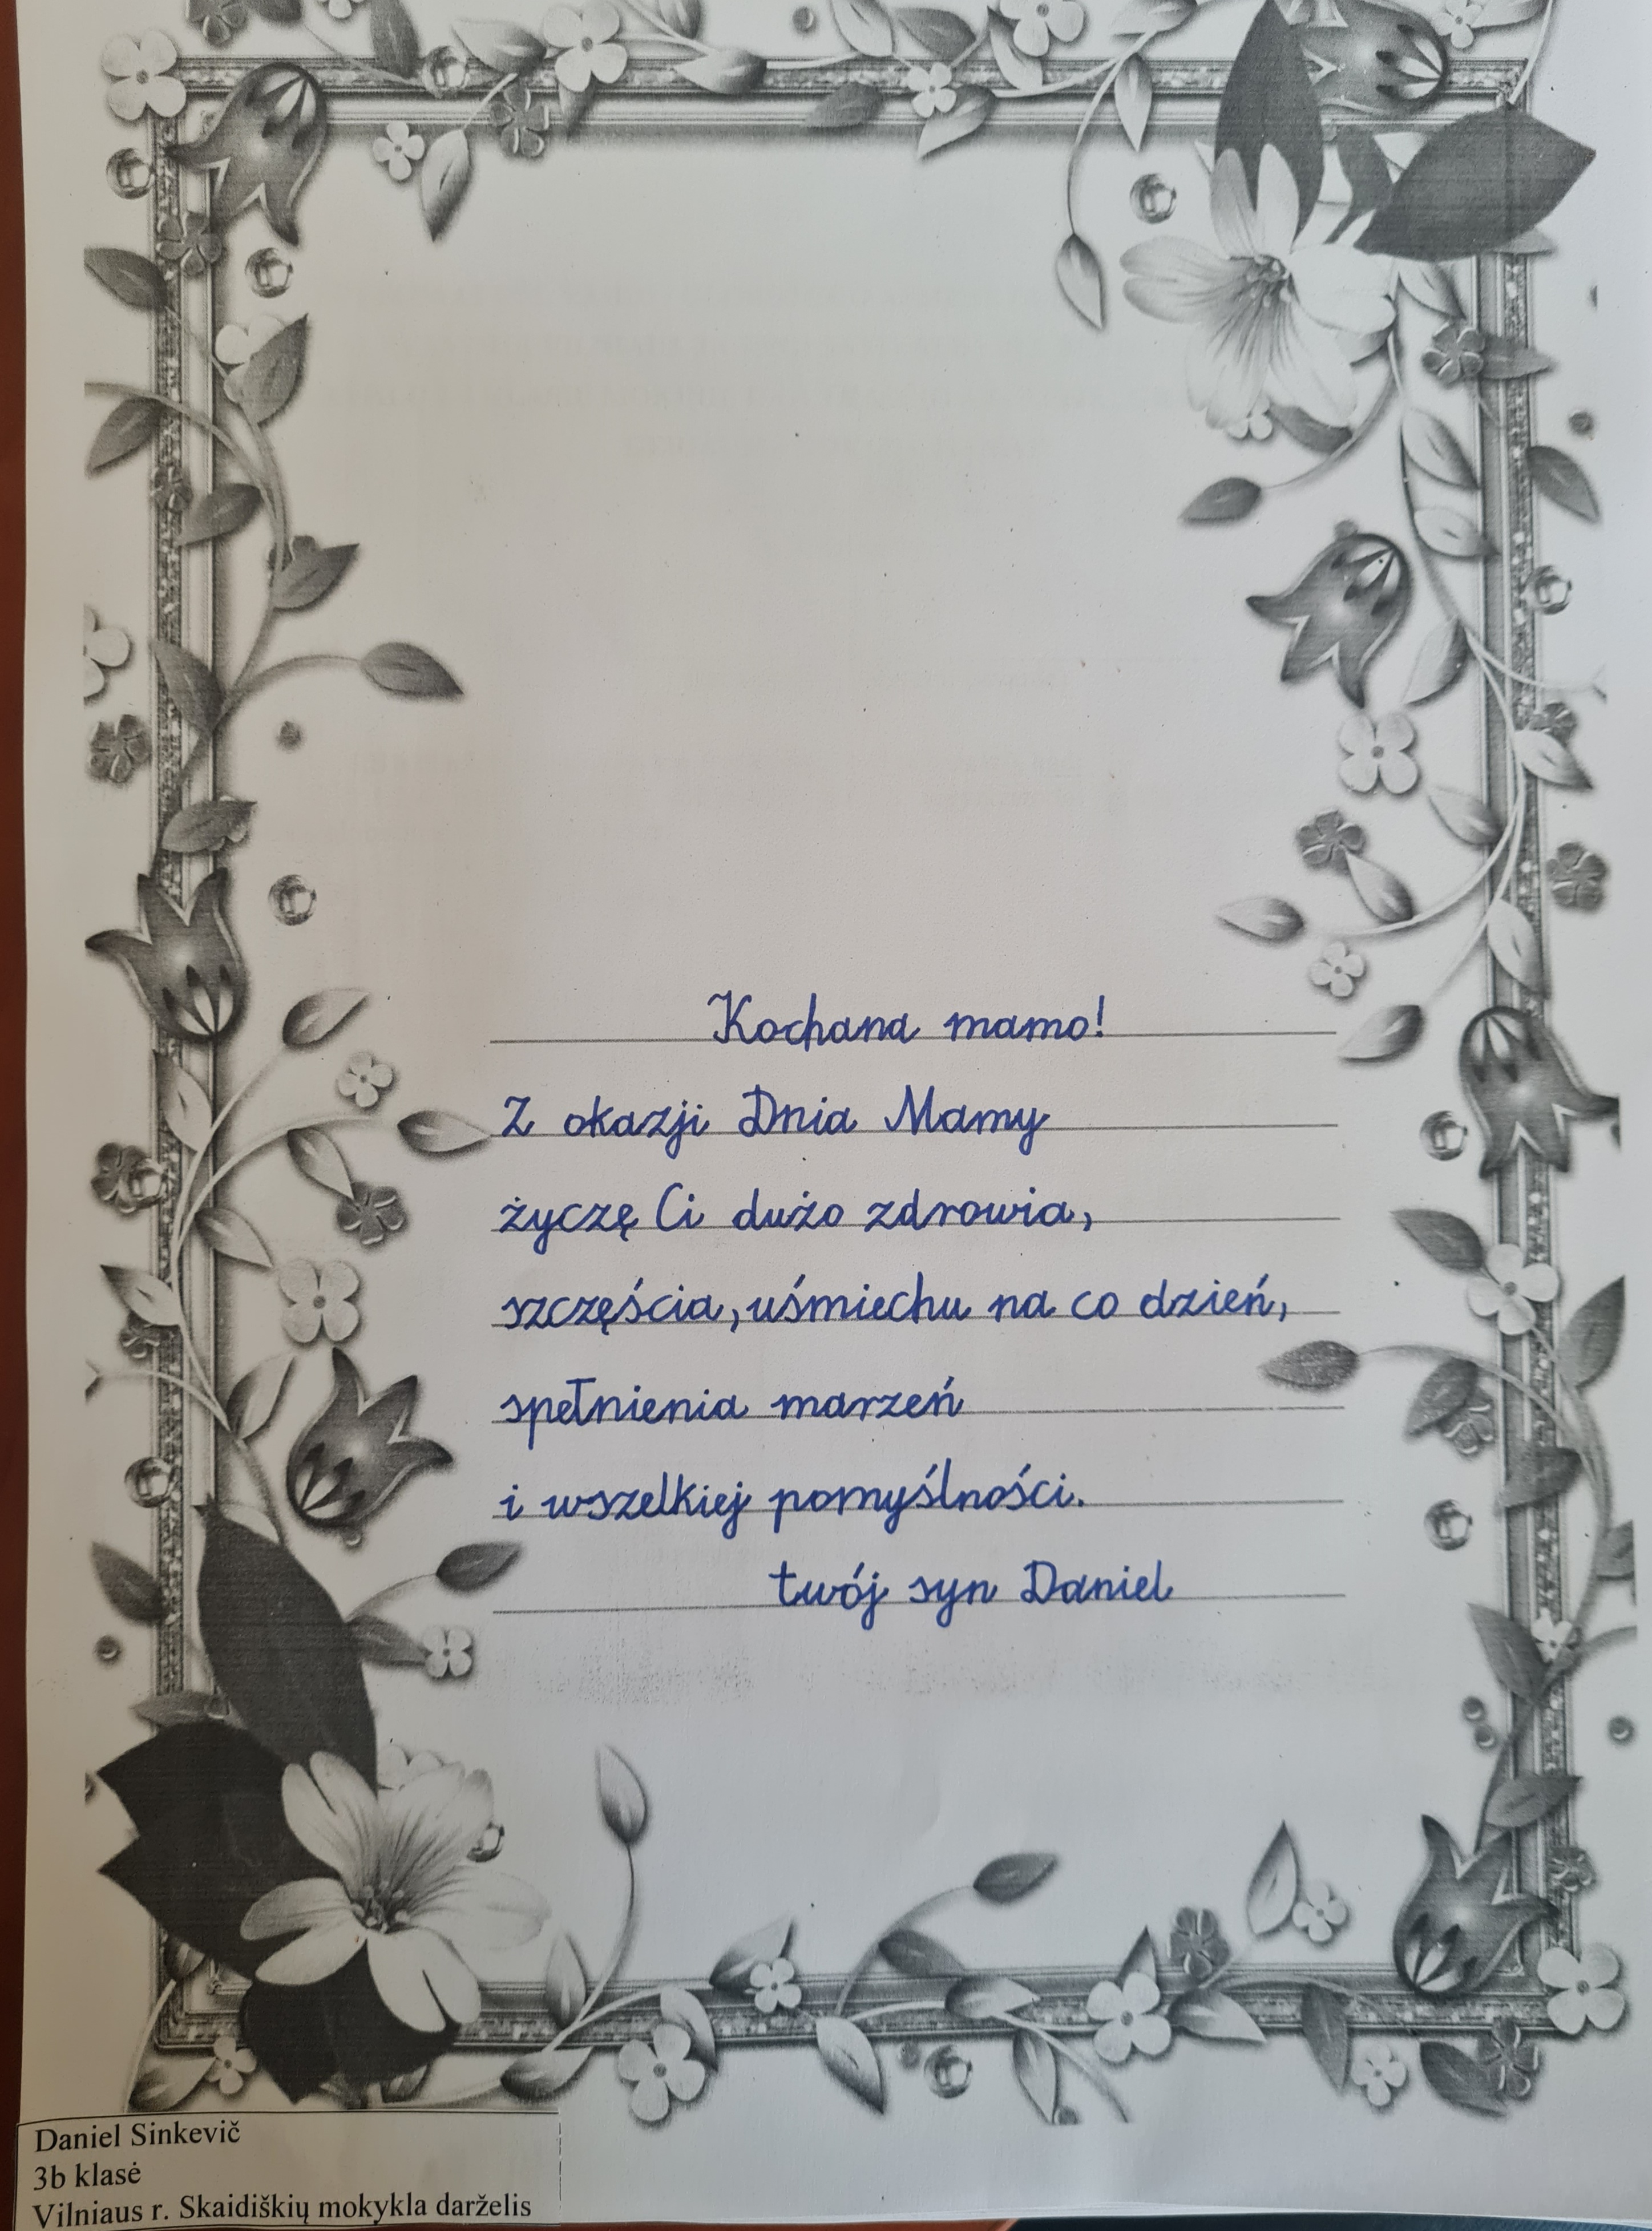 Kochana mamo!
Z okazji Dnia Mamy
życzę Ci dużo zdrowia,
szczęścia, uśmiechu na co dzień,
spełnienia marzeń
i wszelkiej pomyślności.
twój syn Daniel
Daniel Sinkevič
3b klasė
Vilniaus r. Skaidiškių mokykla darželis